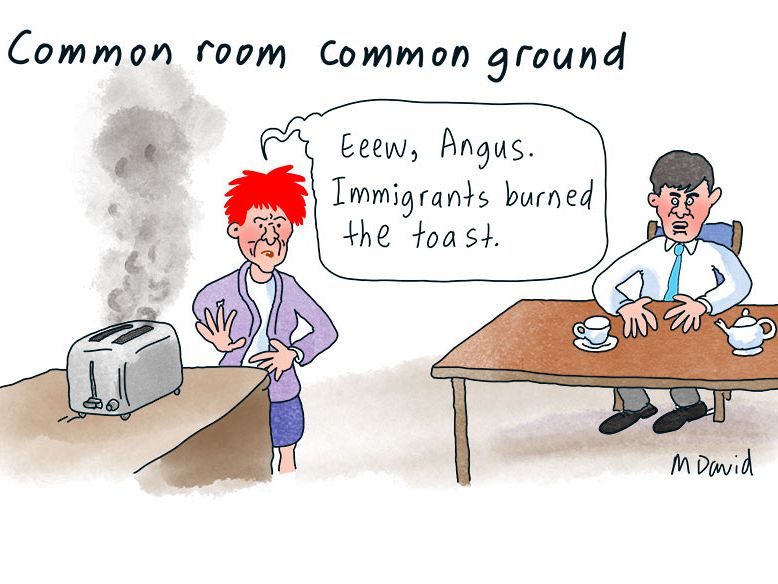 Common room common ground
Eeew, Angus.
Immigrants burned
the toast.
M David